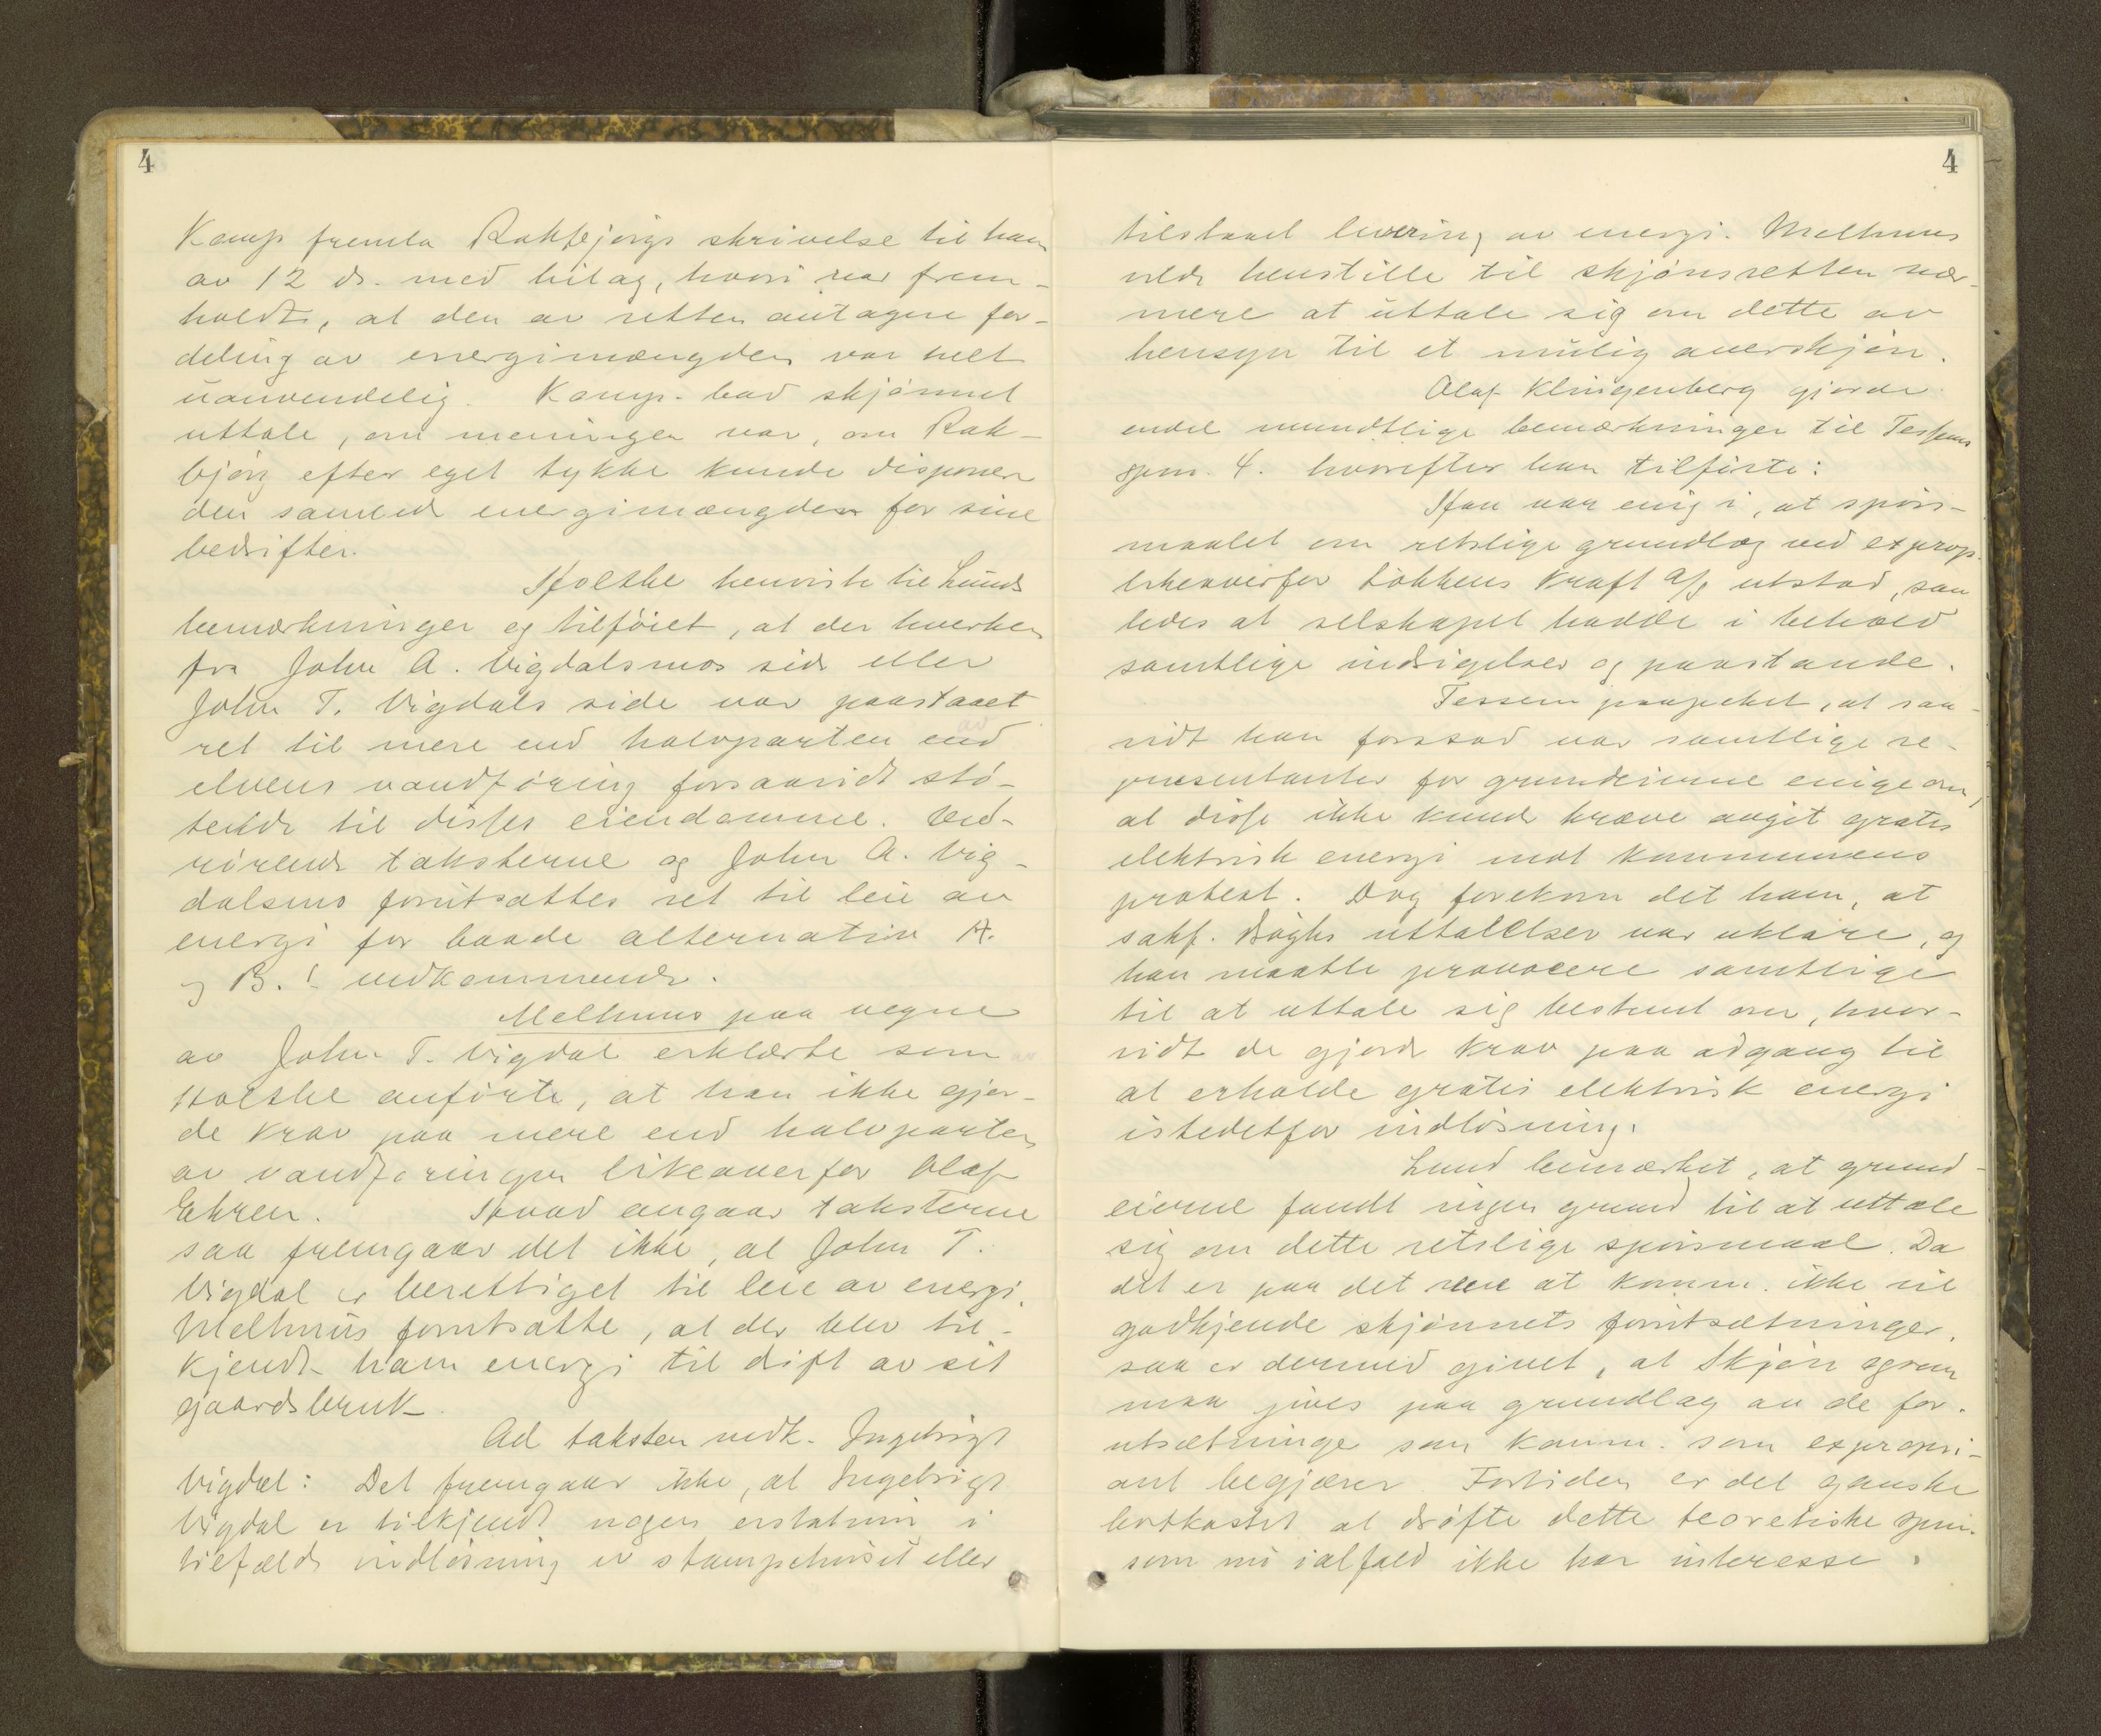 4
Kamp fremla Rakbjørgs skrivelse til ham
av 12 ds. med bilag, hvori var frem-
holdt, at den av retten antagne for-
deling av energimængden var helt
uanvendelig. Kamp. bad skjønnet
uttale, om meningen var, om Rak-
bjørg efter eget tykke kunde disponere
den samlede energimængden for sine
bedrifter.
Holthe henviste til Lunds
bemerkninger og tilføiet, at der hverken
fra John A. Vigdalsmos side eller
John T. Vigdals side var paastaaet
ret til mere end halvparten end av
elvens vandføring forsaavidt stø-
tende til disses eiendomme. Ved-
rørende taksterne og John A. Vig-
dalsmo forutsattes ret til leie av
energi for baade alternativ A.
og B.s vedkommende.
Melhuus paa vegne
av John T. Vigdal erklærte som
Holthe anførte, at han ikke gjor-
de krav paa mere end halvparten
av vandføringen likeoverfor Olaf
Ehren. Hvad angaar taksterne
saa fremgaar det ikke, at John T.
Vigdal er berettiget til leie av energi.
Melhuus forutsatte, at der blev til-
kjendt ham energi til drift av sit
gaardsbruk.
Ad taksten vedk. Ingebrigt
Vigdal: Det fremgaar ikke, at Ingebrigt
Vigdal er tilkjendt nogen erstatning i
tilfælde indløsning av stampehuset eller
4
tilstaaet levering av energi. Melhuus
vilde henstille til skjønsretten nær-
mere at uttale sig om dette av
hensyn til et mulig overskjøn.
Olaf Klingenberg gjorde
endel mundtlige bemærkninger til Tessems
spm. 4. hvorefter han tilførte:
Han var enig i, at spørs-
maalet om retslige grundlag ved exprop.
likeoverfor Løkkens Kraft A/S utstod, saa
ledes at selskapet hadde i behold
samtlige indsigelser og paastande.
Tessem paapeket, at saa-
vidt han forstod var samtlige re-
presentanter for grundeierne enige om,
at disse ikke kunde kræve avgit gratis
elektrisk energi mot kommunens
protest. Dog forekom det ham, at
sakf. Bøghs uttalelser var uklare, og
han maatte provocere samtlige
til at uttale sig bestemt om, hvor-
vidt de gjorde krav paa adgang til
at erholde gratis elektrisk energi
istedetfor indløsning.
Lund bemærket, at grund-
eierne fandt ingen grund til at uttale
sig om dette retslige spørsmaal. Da
det er paa det rene at komm. ikke vil
godkjende skjønnets forutsætninger,
saa er dermed givet, at Skjøn ogsaa
maa gives paa grundlag av de for-
utsætninge som komm. som expropri-
ant begjærer. Fortiden er det ganske
bortkastet at drøfte dette teoretiske spm.
som nu ialfald ikke har interesse.